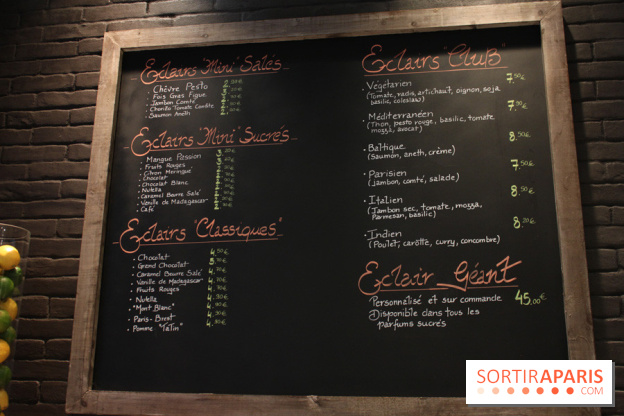 Eclairs "Mini" Salés
Chèvre Pesto
Fois Gras Figue
Jambon Comté
Chorizo Tomate Confite
Saumon Aneth
Eclairs "Mini" Sucrés
Mangue Passion
Fruits Rouges
Citron Meringue
Chocolat
Chocolat Blanc
Nutella
Caramel Beurre Salé
Vanille de Madagascar
Café
Eclairs "Classiques"
Chocolat
Grand Chocolat
Caramel Beurre Salé
Vanille de Madagascar
Fruits Rouges
Nutella
"Mont Blanc"
Paris-Brest
Pomme "Tatin"
Eclairs "Club"
Végétarien 7,50€
(Tomate, radis, artichaut, oignon, soja
basilic, coleslaw)
Méditerranéen
(Thon, pesto rouge, basilic, tomate
mozza, avocat)
Baltique
(Saumon, aneth, crème)
Parisien 7,50€
(Jambon, comté, salade)
Italien
(Jambon sec, tomate, mozza,
Parmesan, basilic)
Indien
(Poulet, carotte, curry, concombre)
Eclair Géant
Personnalisé et sur commande 45,00€
Disponible dans tous les
parfums sucrés
SORTIRAPARIS
.COM